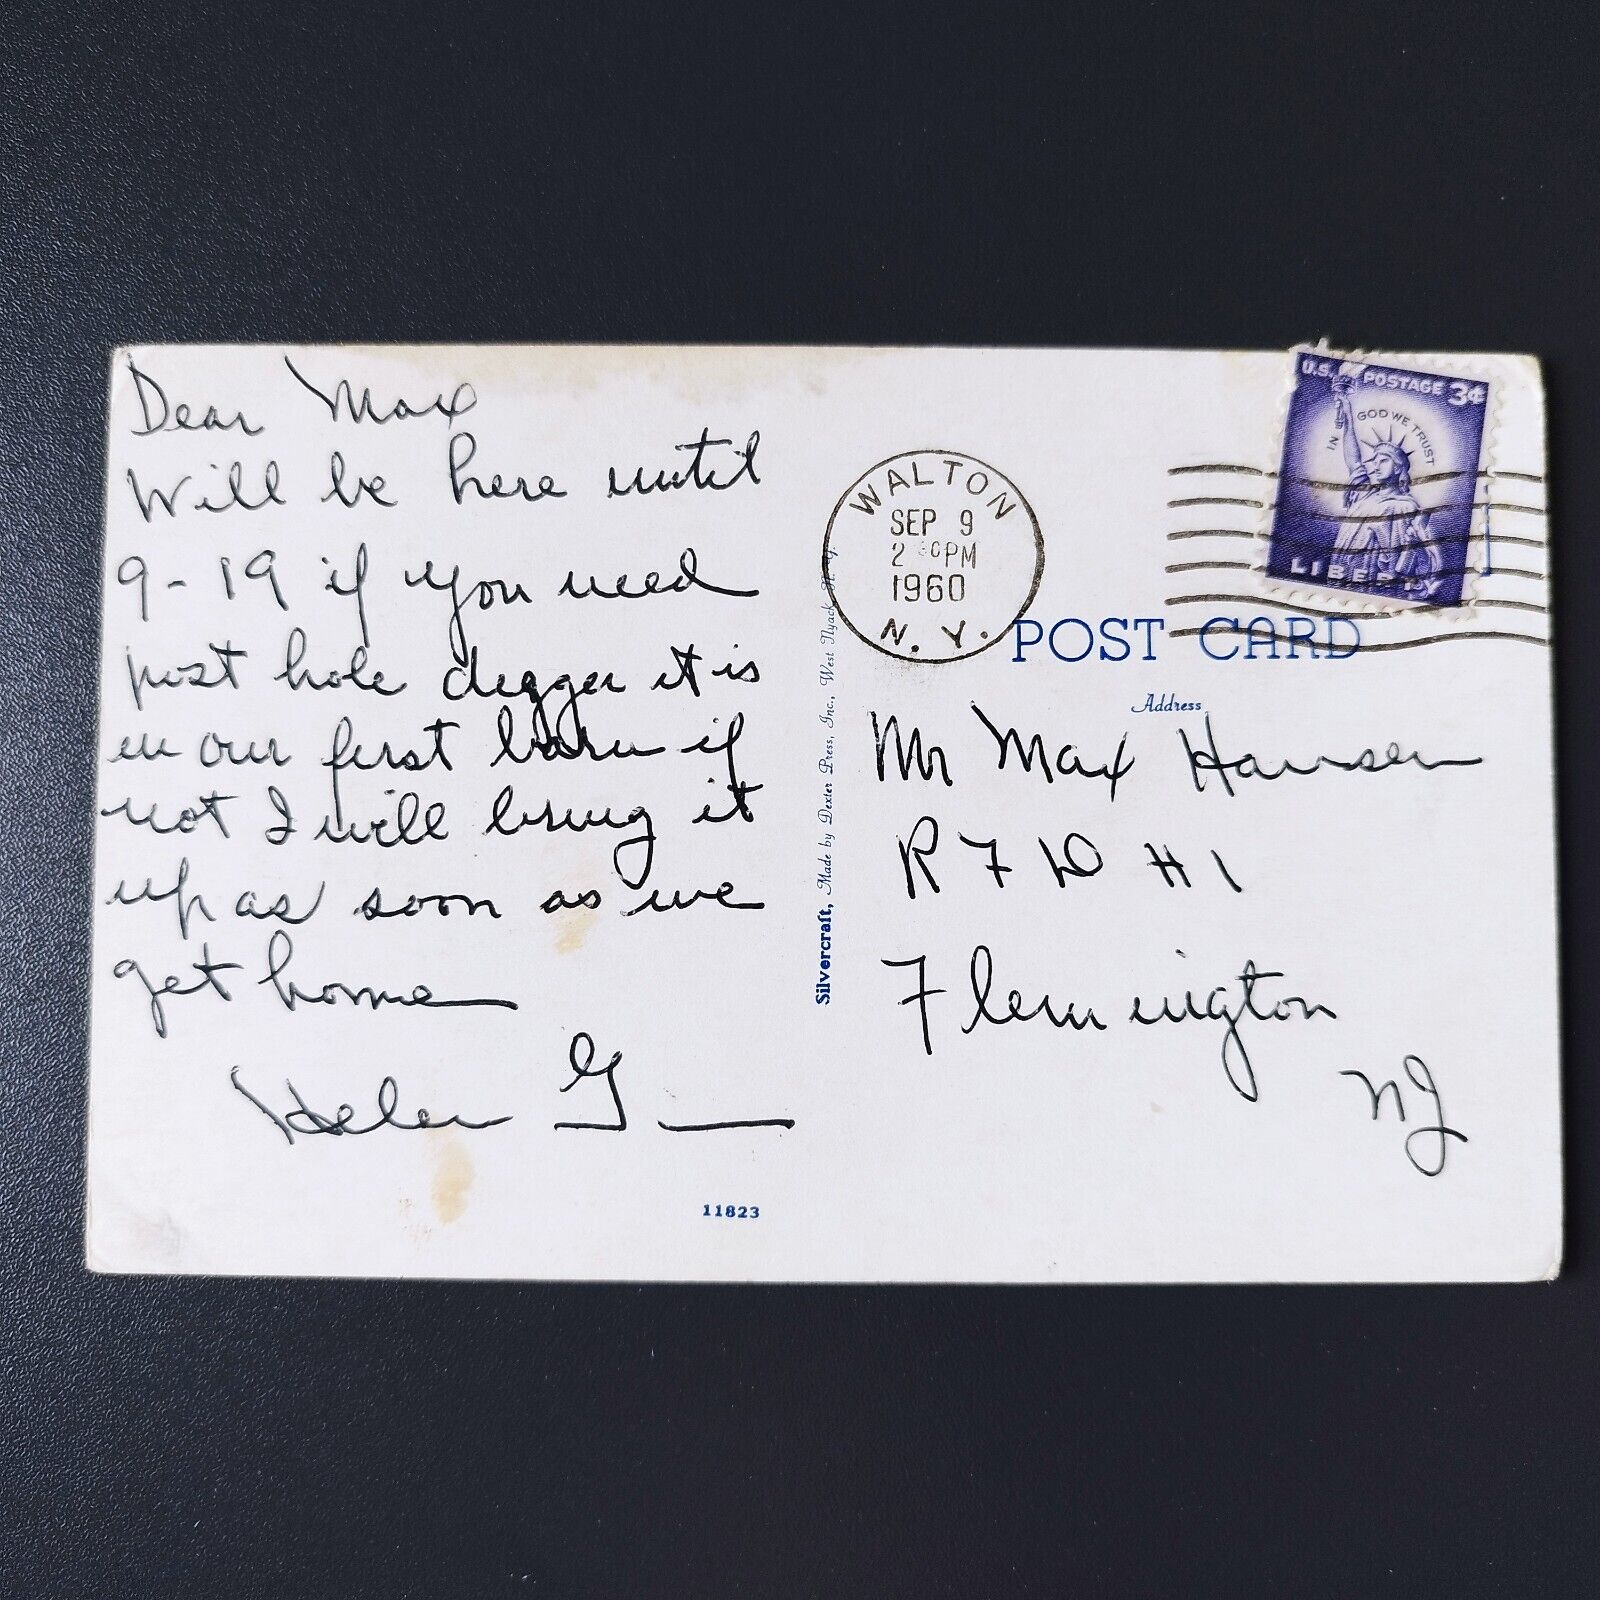 Dear Max
Will be here until
9-19 if you need
post hole digger it is
in our first barn if
not I will bring it
up as soon as we
get home
Helen G
11823
Silvercraft, Made by Dexter Press, Inc., West Nyack, N. Y.
WALTON
SEP 9
2 PM
1960
N. Y.
U.S. POSTAGE 3¢
IN GOD WE TRUST
LIBERTY
POST CARD
Address
Mr Max Hansen
R F D # 1
Flemington
NJ